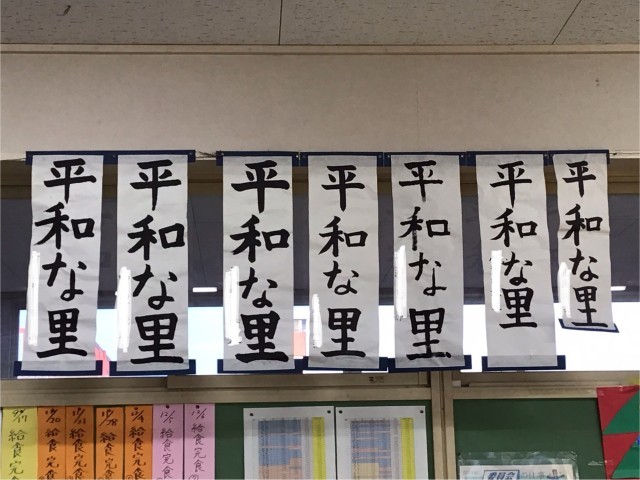 平和な里
平和な里
平和な里
平和な里
平和な里
平和な里
平和な里
給食完
10/20
給食完
給食完
給食完
給食完
12/5
給食完
給食完
委員会